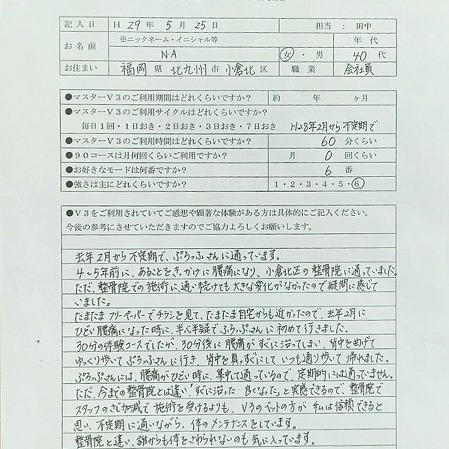 記入日 H 29年 5月 25日 担当：田中
お名前 ※ニックネーム・イニシャル等 N・A 女・男 年代 40代
お住まい 福岡 県 北九州 市 小倉北 区 職業 会社員
●マスターV3のご利用期間はどれくらいですか？ 約 年 ヶ月
●マスターV3のご利用サイクルはどれくらいですか？
毎日1回・1日おき・2日おき・3日おき・7日おき H28年2月から不定期で
●マスターV3のご利用時間はどれくらいですか？ 60分くらい
●90コースは月何回くらいご利用ですか？ 月 0 回くらい
●お好きなモードは何番ですか？ 6 番
●強さは主にどれくらいですか？ 1・2・3・4・5・6
●V3をご利用されていてご感想や顕著な体験がある方は具体的にご記入ください。
今後の参考にさせていただきますのでご協力よろしくお願いします。
去年2月から不定期で、ぷろっふさんに通っています。
4〜5年前に、あることをきっかけに腰痛になり、小倉北区の整骨院に通っていました。
ただ、整骨院での施術に通い続けても大きな変化がなかったので疑問に感じて
いました。
たまたまフリーペーパーでチラシを見て、たまたま自宅からも近かったので、去年2月に
ひどい腰痛になった時に、半信半疑でぷろっふさんに初めて行きました。
30分の体験コースでしたが、30分後に腰痛がすぐに治ってしまい、背中を曲げて
ゆっくり歩いてぷろっふさんに行き、背中を真っすぐにしていつも通り歩いて帰れました。
ぷろっふさんには、腰痛がひどい時に、集中して通っているので、定期的には通っていません。
ただ、今までの整骨院とは違い「すぐに治った 良くなった」と実感できるので、整骨院で
スタッフのさじ加減で施術を受けるよりも、V3のベッドの方が私は信頼できると
思い、不定期に通いながら、体のメンテナンスをしています。
整骨院と違い、誰からも体をさわられないのも気に入っています。